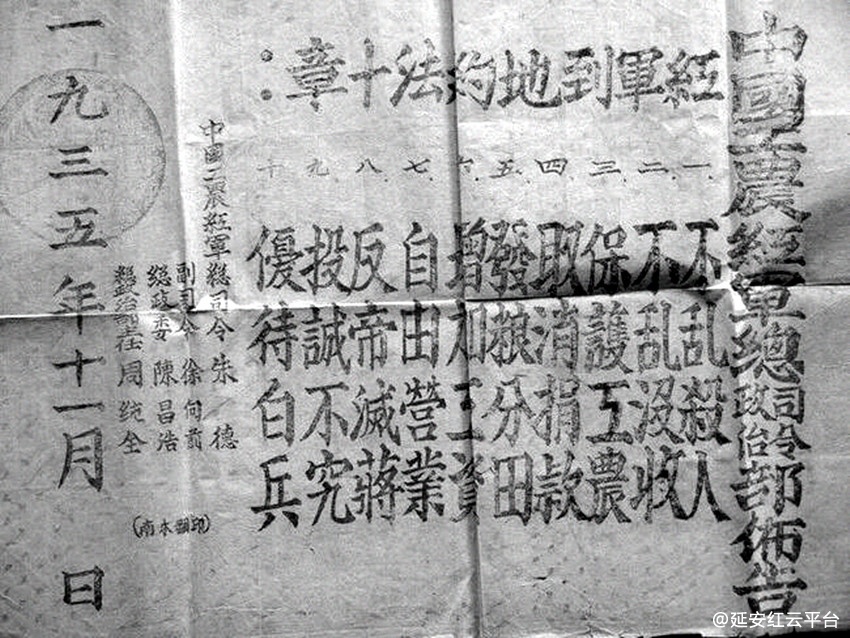 中國工農紅軍總司令政治部佈告
紅軍到地約法十章：
一、不乱殺人
二、不乱没收
三、保護工農
四、取消捐款
五、發粮分田
六、增加工資
七、自由營業
八、反帝滅蔣
九、投誠不究
十、優待白兵
中國工農紅軍總司令 朱德
副司令 徐向前
總政委 陳昌浩
總政治部主任 周纯全
(南本翻印)
一九三五年十一月 日
@延安红云平台